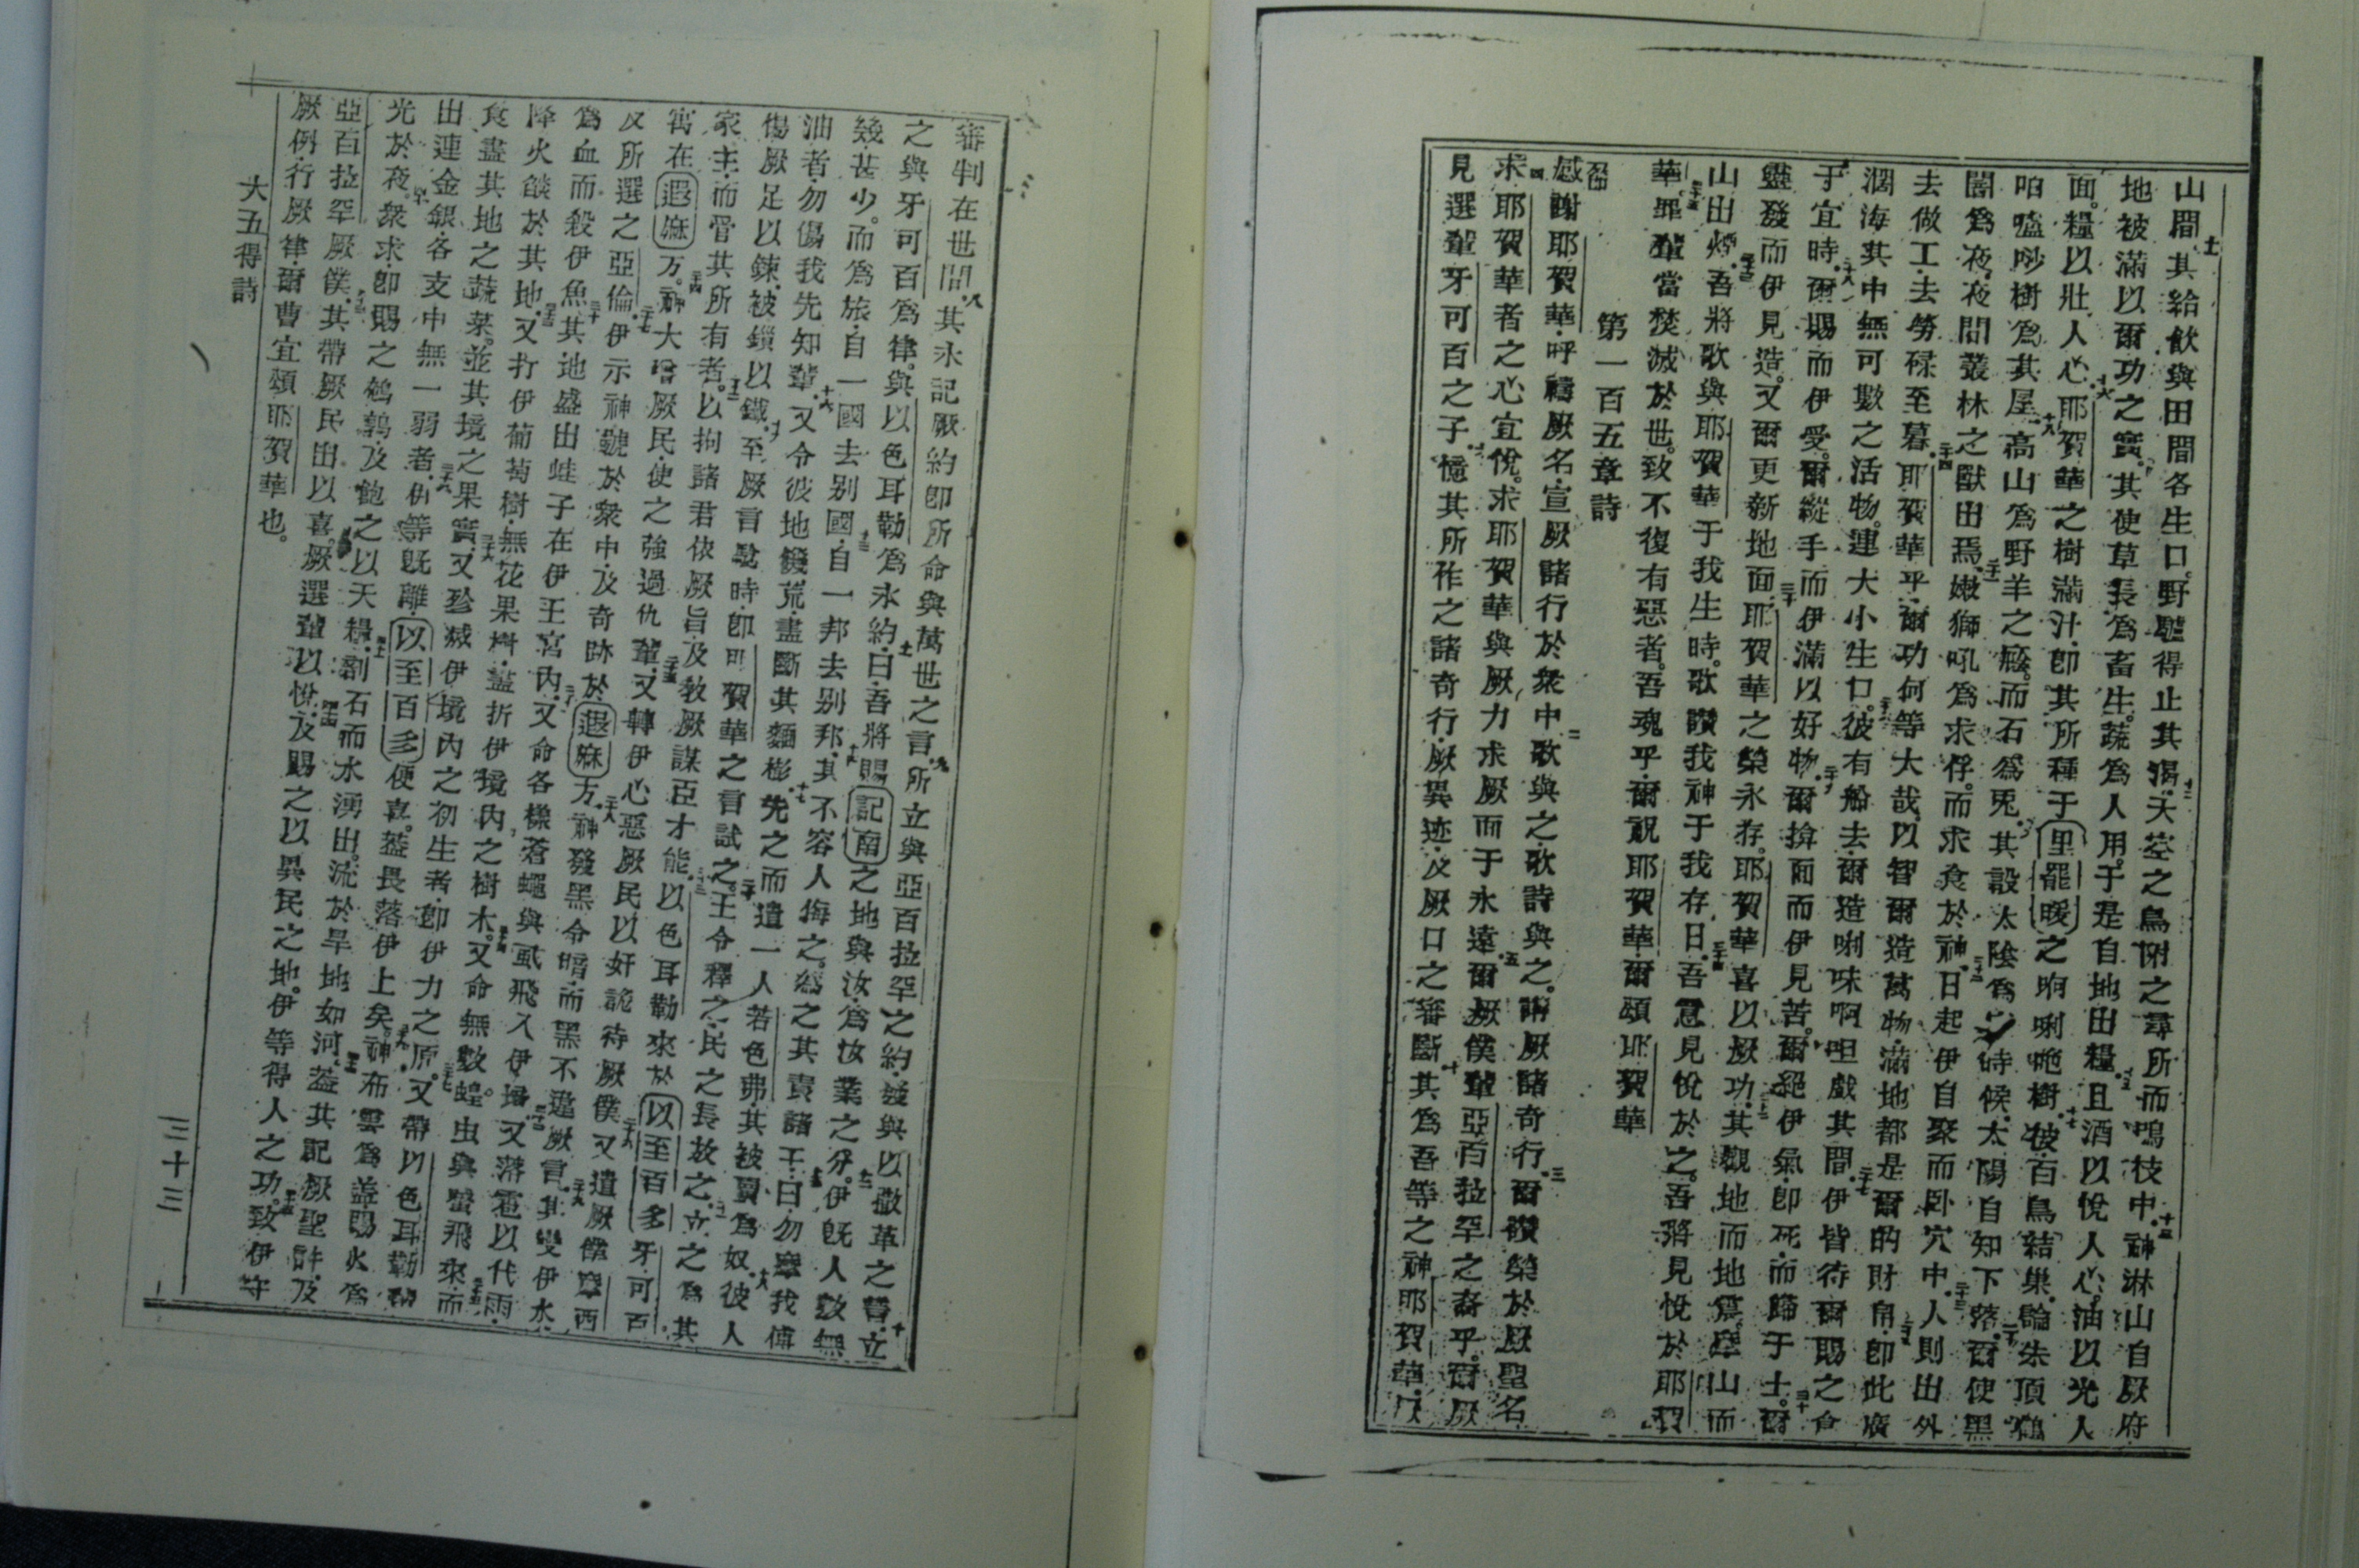 山間其給飲與田間各生口野驢得止其渴天空之鳥附之尋所而鳴枝中神淋山自厥府
地被滿以爾功之實其使草長為畜生蔬為人用于是自地出糧且酒以悅人心油以光人
面糧以壯人心耶賀華之樹滿汁即其所種于里罷暖之𠵽唎𠺢樹彼百鳥結巢論朱頂鶴
咱嗑吵樹為其屋高山為野羊之廕而石為兎其設太陰為時候太陽自知下落爾使黑
闇為夜夜間叢林之獸出焉嫩獅吼為求俘而求食於神日起伊自聚而臥穴中人則出外
去做工去勞祿至暮耶賀華乎爾功何等大哉以智爾造萬物滿地都是爾的財帛即此廣
濶海其中無可數之活物連大小生口彼有船去爾造唎味啊呾戲其間伊皆待爾賜之食
于宜時爾賜而伊受爾縱手而伊滿以好物爾揜面而伊見苦爾絕伊氣即死而歸于土爾
靈發而伊見造又爾更新地面耶賀華之榮永存耶賀華喜以厥功其觀地而地震摩山而
山出煙吾將歌與耶賀華于我生時歌讚我神于我存日吾意見悅於之吾將見悅於耶賀
華罪輩當焚滅於世致不復有惡者吾魂乎爾祝耶賀華爾頌耶賀華
第一百五章詩
感謝耶賀華呼禱厥名宣厥諸行於衆中歌與之歌詩與之講厥諸奇行爾讚榮於厥聖名
求耶賀華者之心宜悅求耶賀華與厥力求厥面于永遠爾厥僕輩亞百拉罕之裔乎爾厥
見選輩牙可百之子憶其所作之諸奇行厥異迹及厥口之審斷其為吾等之神耶賀華厥
審判在世間其永記厥約即所命與萬世之言所立與亞百拉罕之約發與以撒革之誓立
之與牙可百為律與以色耳勒為永約曰吾將賜記南之地與汝為汝業之分伊既人數無
幾甚少而為旅自一國去别國自一邦去别邦其不容人侮之為之其責諸王曰勿摩我傅
油者勿傷我先知輩又令彼地饑荒盡斷其麵彭先之而遣一人若色弗其被賣為奴彼人
傷厥足以鍊被鎖以鐵至厥言騐時即耶賀華之言試之王令釋之民之長放之立之為其
家主而管其所有者以拘諸君依厥旨及教厥謀亞才能以色耳勒來於以至百多牙可百
寓在遐麻方神大增厥民使之強過仇輩又轉伊心惡厥民以奸詭待厥僕又遣厥僕摩西
及所選之亞倫伊示神號於衆中及奇跡於遐麻方神發黑令暗而黑不違厥言其變伊水
為血而殺伊魚其地盛出蛙子在伊王宮內又命各樣蒼蠅與虱飛入伊境又落雹以代雨
降火燄於其地又打伊葡萄樹無花果樹盡折伊境內之樹木又命無數蝗虫與蜢飛來而
食盡其地之蔬菜並其境之果實又殄滅伊境內之初生者即伊力之原又帶以色耳勒
出連金銀各支中無一弱者伊等既離以至百多便喜蓋畏落伊上矣神布雲為蓋賜火為
光於夜衆求即賜之鵪鶉及飽之以天糧割石而水湧出流於旱地如河蓋其記厥聖許及
亞百拉罕厥僕其帶厥民出以喜厥選輩以悅及賜之以異民之地伊等得人之功致伊守
厥例行厥律爾曹宜頌耶賀華也
大五得詩
三十三